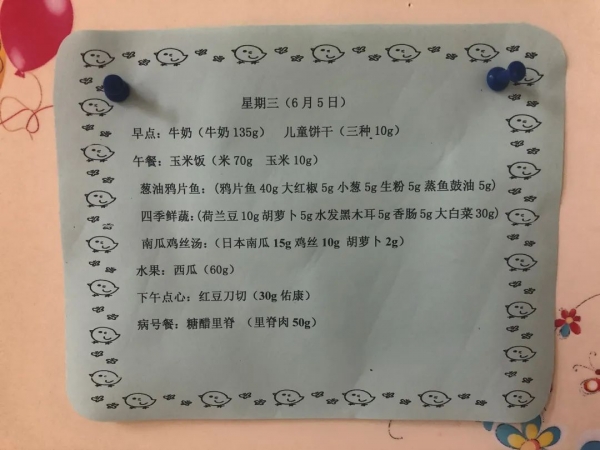 星期三（6月5日）
早点：牛奶（牛奶135g） 儿童饼干（三种10g）
午餐：玉米饭（米70g 玉米10g）
葱油鸦片鱼：（鸦片鱼40g 大红椒5g 小葱5g 生粉5g 蒸鱼鼓油5g）
四季鲜蔬：（荷兰豆10g 胡萝卜5g 水发黑木耳5g 香肠5g 大白菜30g）
南瓜鸡丝汤：（日本南瓜15g 鸡丝10g 胡萝卜2g）
水果：西瓜（60g）
下午点心：红豆刀切（30g佑康）
病号餐：糖醋里脊 （里脊肉50g）